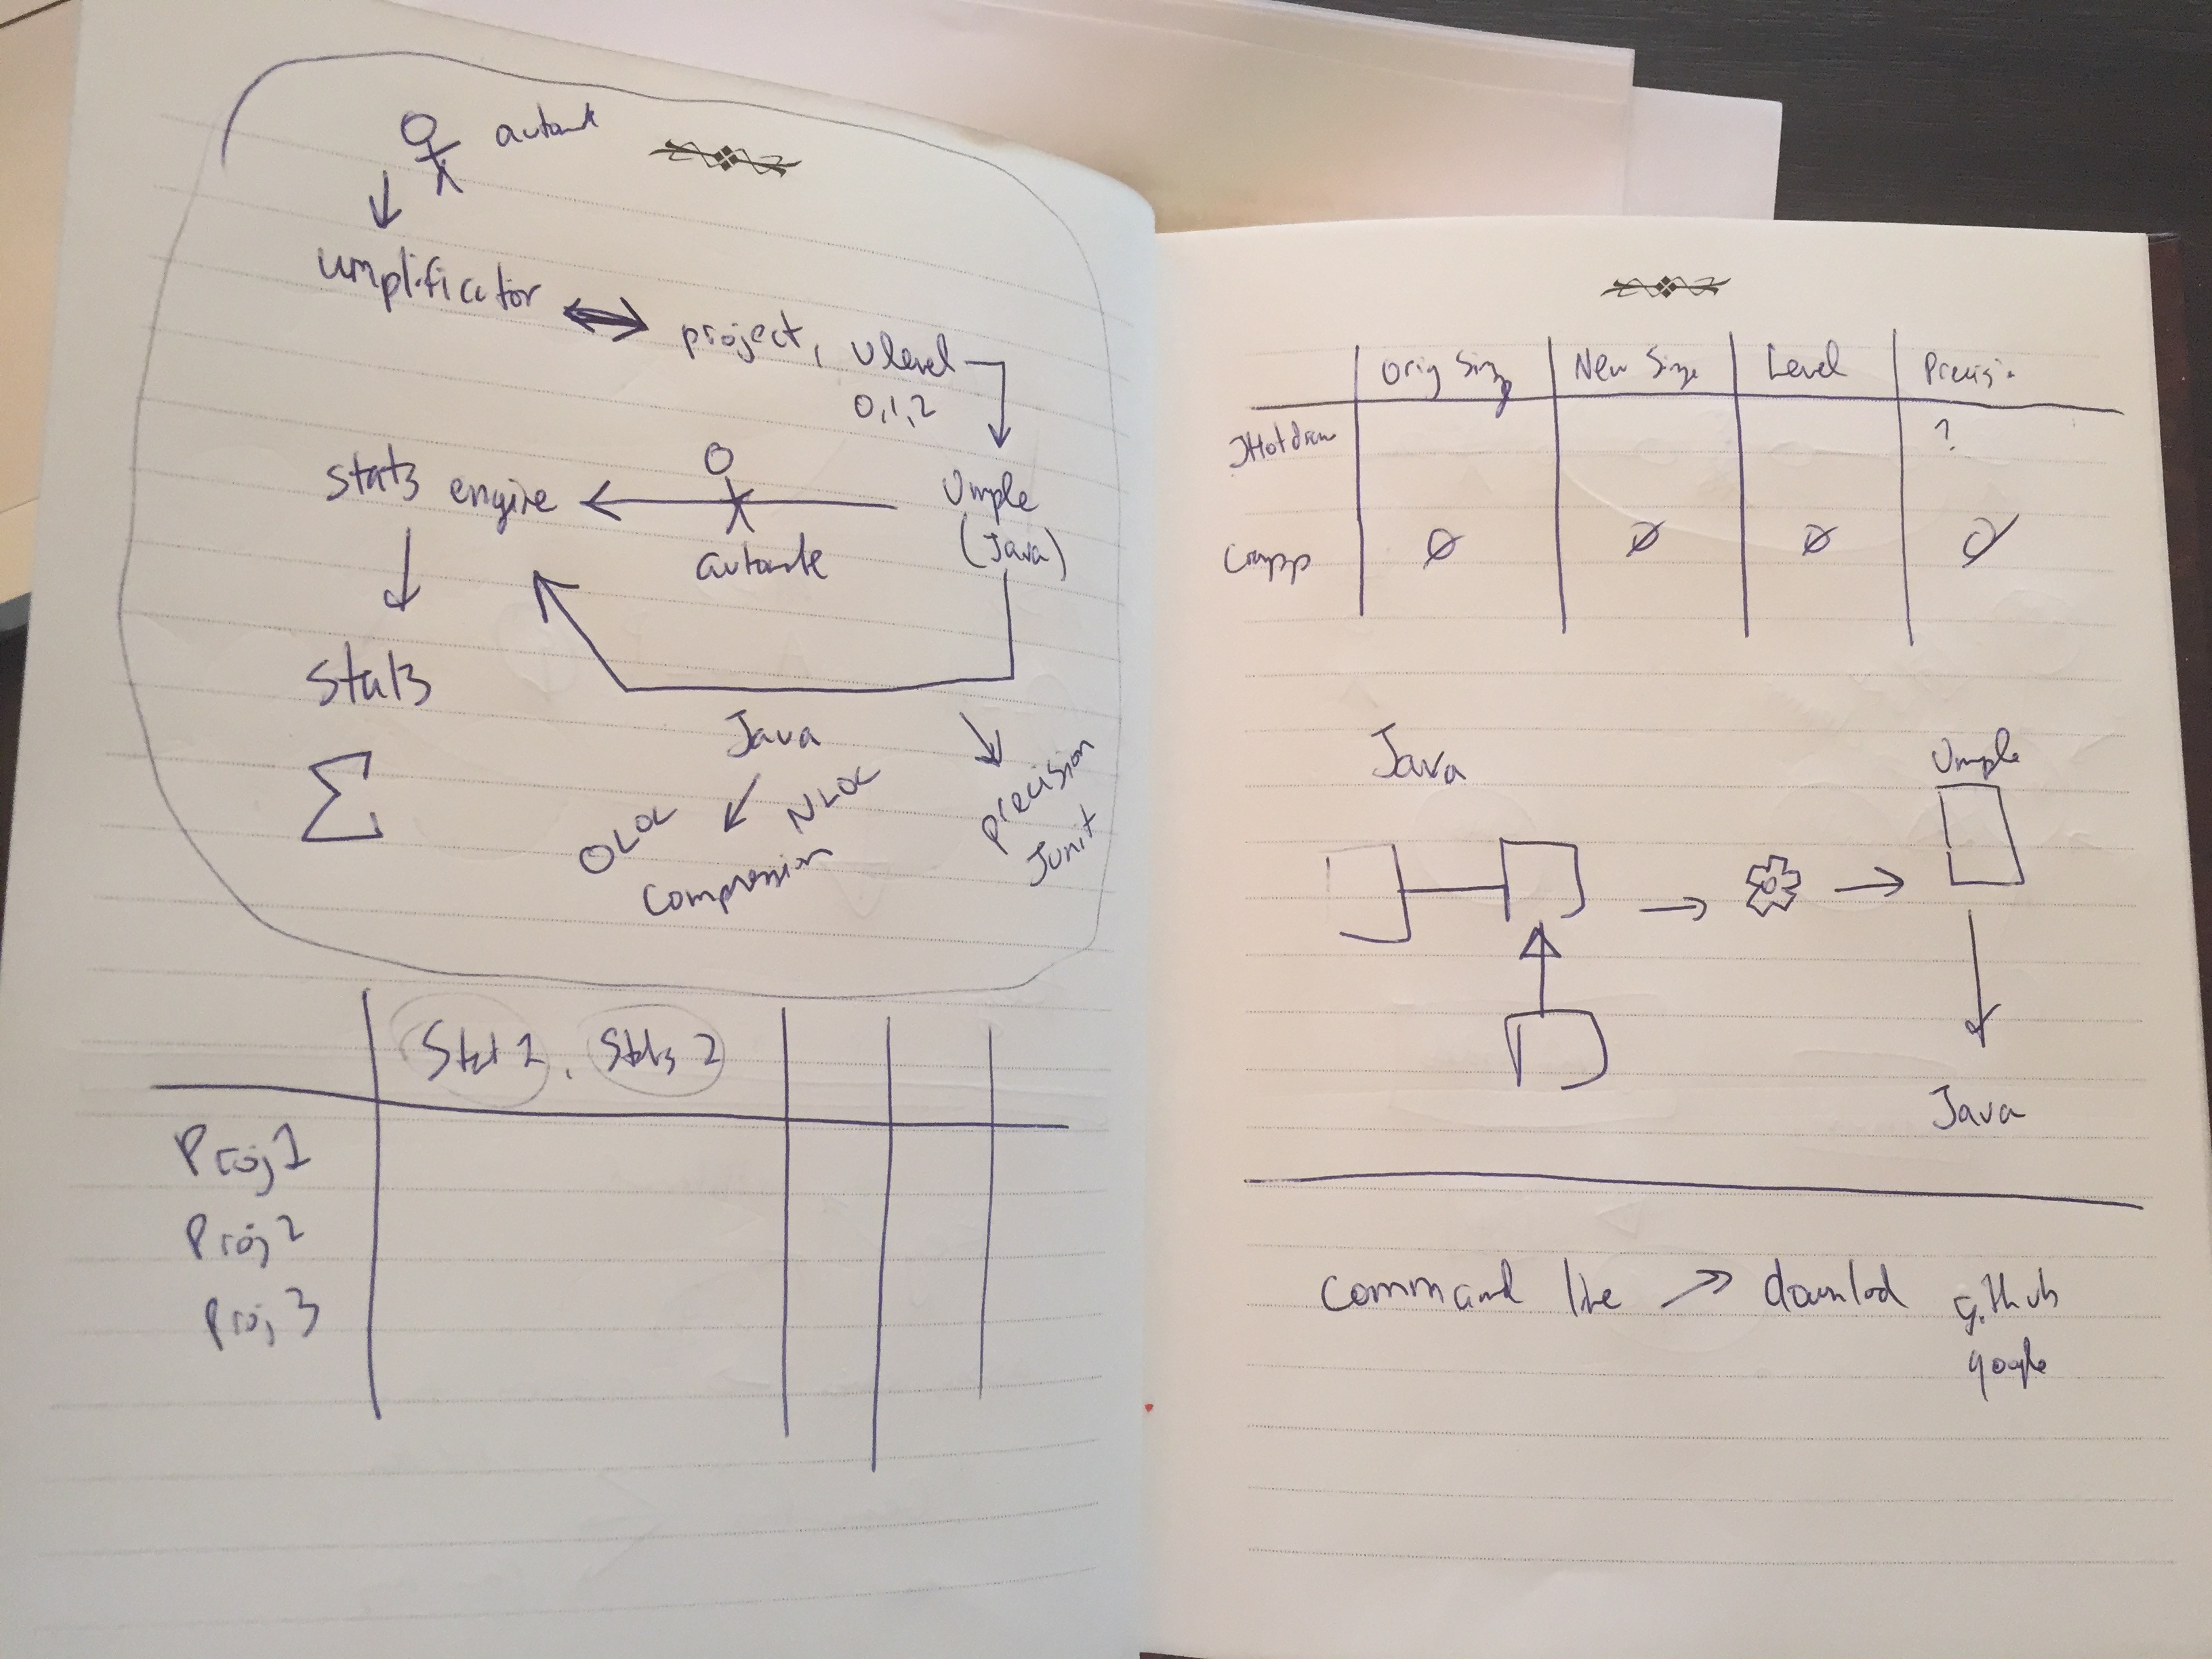 umplificator
project, Ulevel
0,1,2
Stats engine
Umple
(Java)
Stats
Java
OLOC
NLOC
Compression
precision
Junit
Stat 1, Stats 2
Proj 1
Proj 2
Proj 3
Orig Size
New Size
Level
JHotdraw
?
Ø Ø Ø Ø
Java
Umple
Java
Command line
github
google